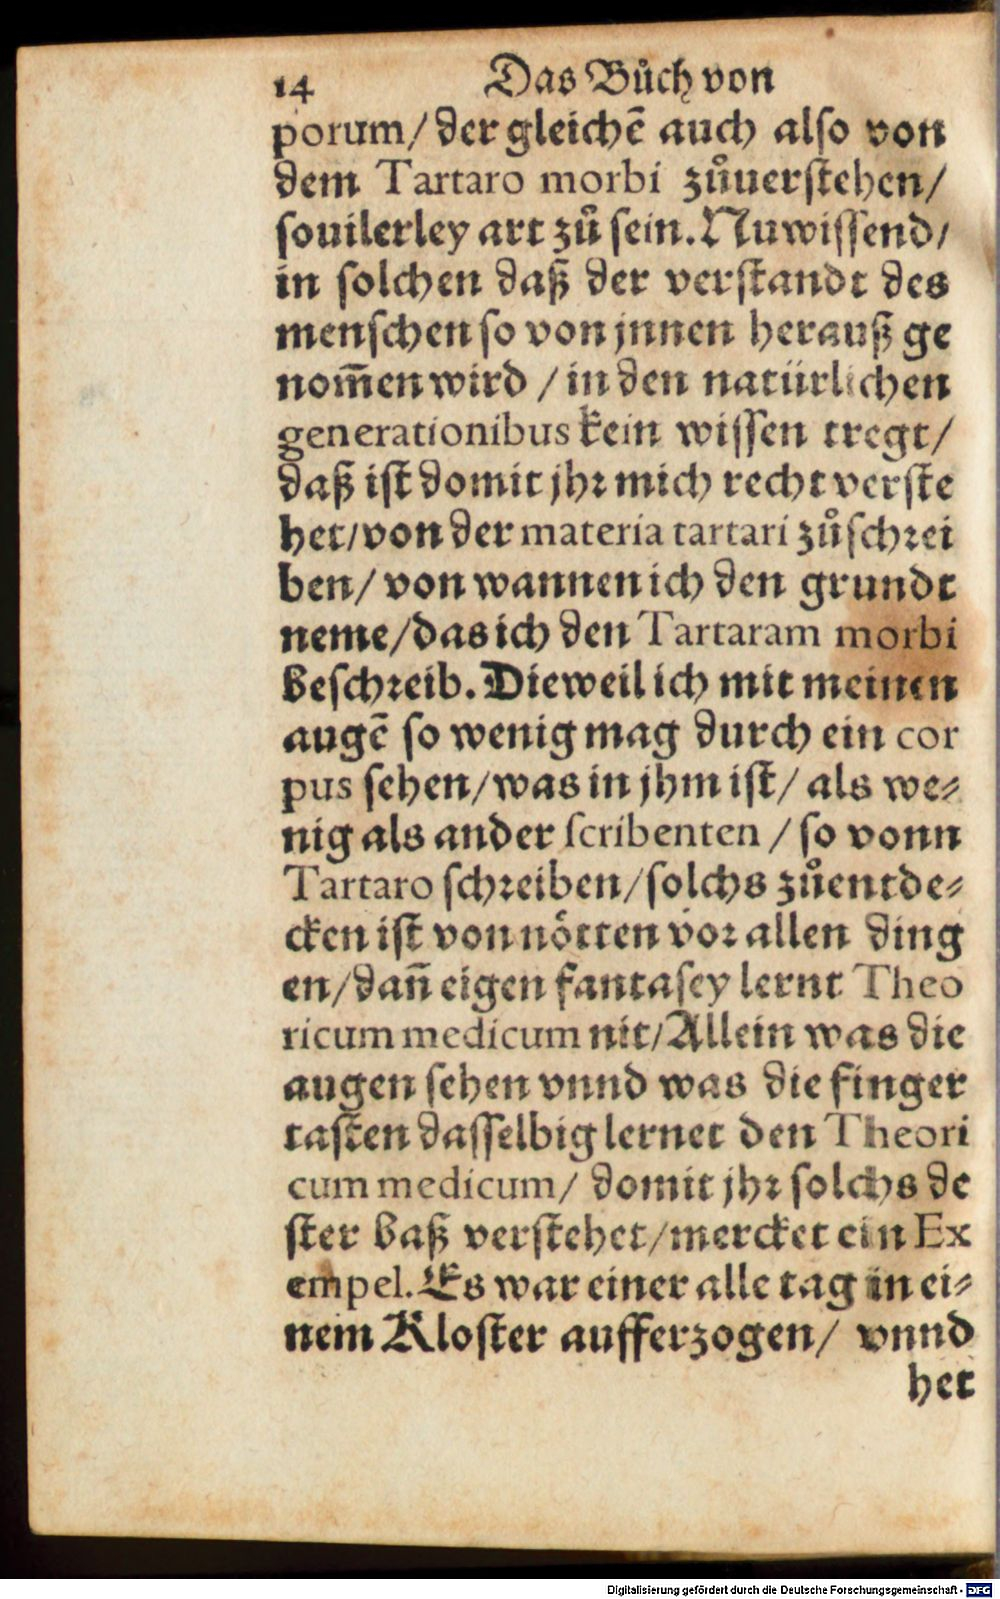 14 Das Bůch von
porum/ der gleichē auch also von
dem Tartaro morbi zůuerstehen/
souilerley art zů sein. Nu wissend/
in solchen daß der verstandt des
menschen so von jnnen herauß ge
nom̄en wird / in den natürlichen
generationibus kein wissen tregt/
daß ist domit jhr mich recht verste
het/ von der materia tartari zůschrei
ben/ von wannen ich den grundt
neme/ das ich den Tartaram morbi
beschreib. Dieweil ich mit meinen
augē so wenig mag durch ein cor
pus sehen/ was in jhm ist/ als we⸗
nig als ander scribenten / so vonn
Tartaro schreiben/ solchs zůentde⸗
cken ist von nötten vor allen ding
en/ dan̄ eigen fantasey lernt Theo
ricum medicum nit/ Allein was die
augen sehen vnnd was die finger
tasten dasselbig lernet den Theori
cum medicum/ domit jhr solchs de
ster baß verstehet/ mercket ein Ex
empel. Es war einer alle tag in ei⸗
nem Kloster aufferzogen/ vnnd
het
Digitalisierung gefördert durch die Deutsche Forschungsgemeinschaft - DFG